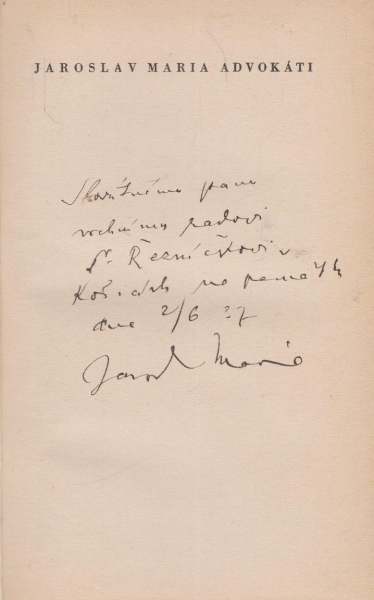 JAROSLAV MARIA ADVOKÁTI
Slovutnému panu
vrchnímu radovi
Dr. Řezníčkovi v
Košicích na památku
dne 2/6 37
Jarosl Maria